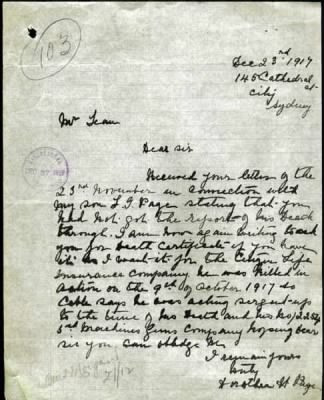 103
Dec 23rd 1917
145 Cathedral st
City
Sydney
Mr Lean
Dear sir
Received your letter of the
23rd November in connection with
my son L J Page stating that you
had not got the report of his Death
through. I am now again writing to ask
you for Death Certificate if you have
it as I want it for the Life
Insurance company he was killed in
action on the 9th of October 1917 so
Cable says he was acting sergent up
to the time of his Death and his No
5rd Machine Guns company hoping Dear
sir you can oblidge me
I remain yours
truly
Page
21/12